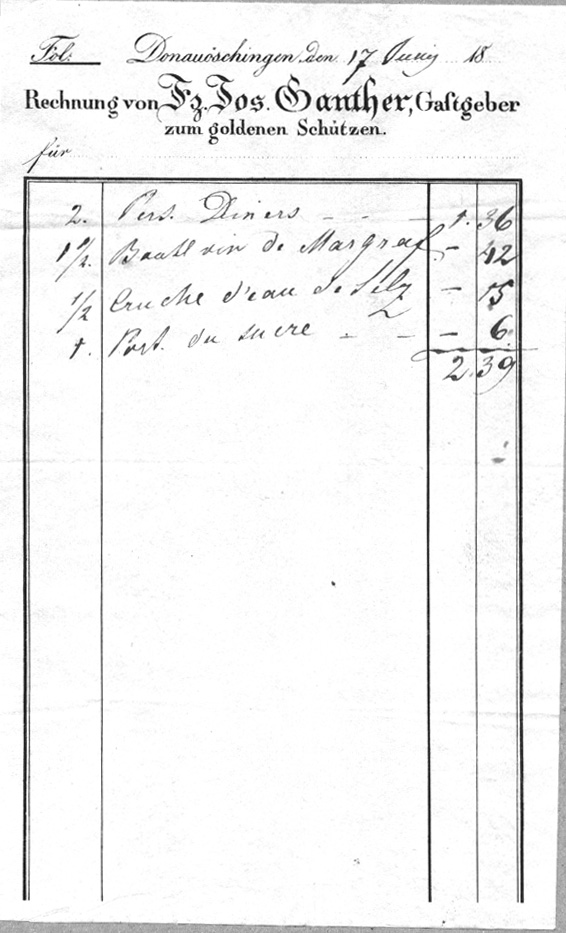 Fol:
Donauöschingen, den 17 Juny 18
Rechnung von Fz. Jos. Ganther, Gastgeber
zum goldenen Schützen.
für
2. Pers. Diners - - 1. 36
1 1/2. Boutl vin de Margraf. - 42
1/2 Cruche d'eau de Selz - 15
1. Port. du sucre - - 6.
2. 39